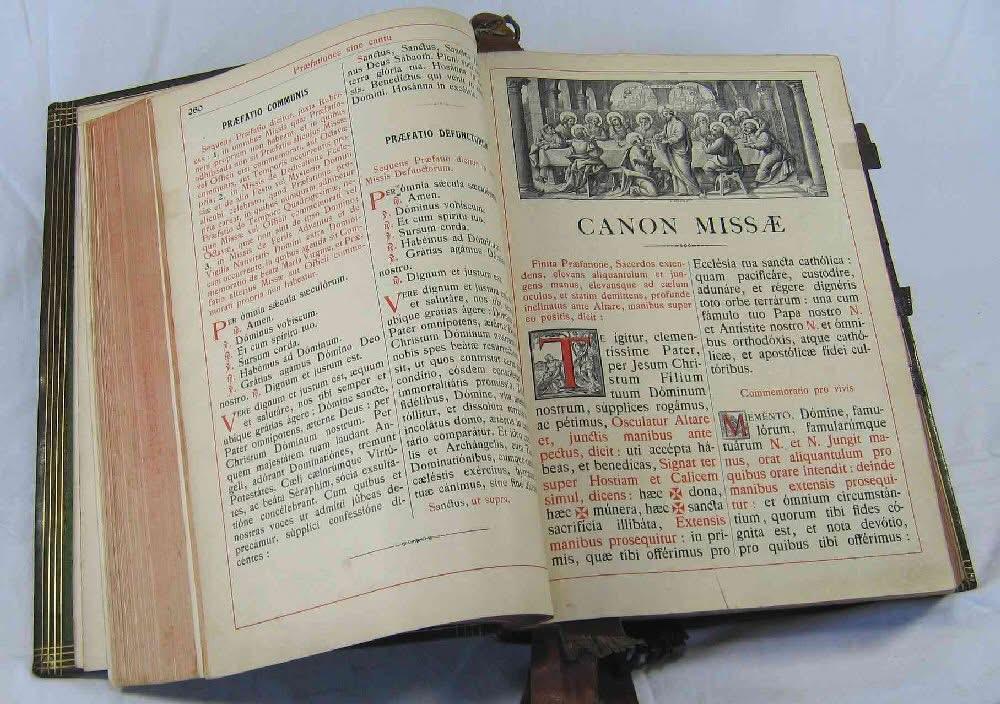 260
Præfationes sine cantu
PRÆFATIO COMMUNIS
Sequens Præfatio dicitur, juxta Rubri-
Per ómnia sæcula sæculórum.
℟. Amen.
℣. Dóminus vobíscum.
℟. Et cum spíritu tuo.
℣. Sursum corda.
℟. Habémus ad Dóminum.
℣. Grátias agámus Dómino Deo
nostro. ℟. Dignum et justum est.
Vere dignum et justum est, æquum
et salutáre, nos tibi semper et
ubíque grátias ágere : Dómine sancte,
Pater omnípotens, ætérne Deus : per
Christum Dóminum nostrum. Per
quem majestátem tuam laudant An-
geli, adórant Dominatiónes, tremunt
Potestátes. Cæli cælorúmque Virtú-
tes, ac beáta Séraphim, sócia exsulta-
tióne concélebrant. Cum quibus et
nostras voces ut admitti júbeas de-
precámur, súpplici confessióne di-
centes :
Sanctus, Sanctus, Sanctus,
nus Deus Sábaoth. Pleni sunt
terra glória tua. Hosánna
sis. Benedíctus qui venit
Dómini. Hosánna in excélsis.
PRÆFATIO DEFUNCTORUM
Sequens Præfatio dicitur in
Missis Defunctorum.
Per ómnia sæcula sæculórum.
℟. Amen.
℣. Dóminus vobíscum.
℟. Et cum spíritu tuo.
℣. Sursum corda.
℟. Habémus ad Dóminum.
℣. Grátias agámus Dómino
nostro.
℟. Dignum et justum est.
Vere dignum et justum est
et salutáre, nos tibi
ubíque grátias ágere : Dómine
Pater omnípotens, ætérne
Christum Dóminum nostrum
nobis spes beátæ resurrectiónis
sit, ut quos contrístat
condítio, eósdem consolétur
immortalitátis promíssio.
fidélibus, Dómine, vita
tóllitur, et dissolúta terréstris
incolátus domo, ætérna
tátio comparátur. Et ídeo cum
lis et Archángelis, cum Thronis
Dominatiónibus, cumque
cæléstis exércitus, hymnum
tuæ cánimus, sine fine
Sanctus, ut supra.
CANON MISSÆ
Finita Præfatione, Sacerdos exten-
dens, elevans aliquantulum et jun-
gens manus, elevansque ad cælum
oculos, et statim demittens, profunde
inclinatus ante Altare, manibus super
eo positis, dicit :
Te igitur, clemen-
tíssime Pater,
per Jesum Chri-
stum Fílium
tuum Dóminum
nostrum, súpplices rogámus,
ac pétimus, Osculatur Altare
et, junctis manibus ante
pectus, dicit : uti accépta há-
beas, et benedícas, Signat ter
super Hostiam et Calicem
simul, dicens : hæc ✠ dona,
hæc ✠ múnera, hæc ✠ sancta
sacrifícia illibáta, Extensis
manibus prosequitur : in pri-
mis, quæ tibi offérimus pro
Ecclésia tua sancta cathólica :
quam pacificáre, custodíre,
adunáre, et régere dignéris
toto orbe terrárum : una cum
fámulo tuo Papa nostro N.
et Antístite nostro N. et ómni-
bus orthodóxis, atque cathó-
licæ, et apostólicæ fídei cul-
tóribus.
Commemoratio pro vivis
Memento, Dómine, famu-
lórum, famularúmque
tuárum N. et N. Jungit ma-
nus, orat aliquantulum pro
quibus orare intendit : deinde
manibus extensis prosequi-
tur : et ómnium circumstán-
tium, quorum tibi fides có-
gnita est, et nota devótio,
pro quibus tibi offérimus :